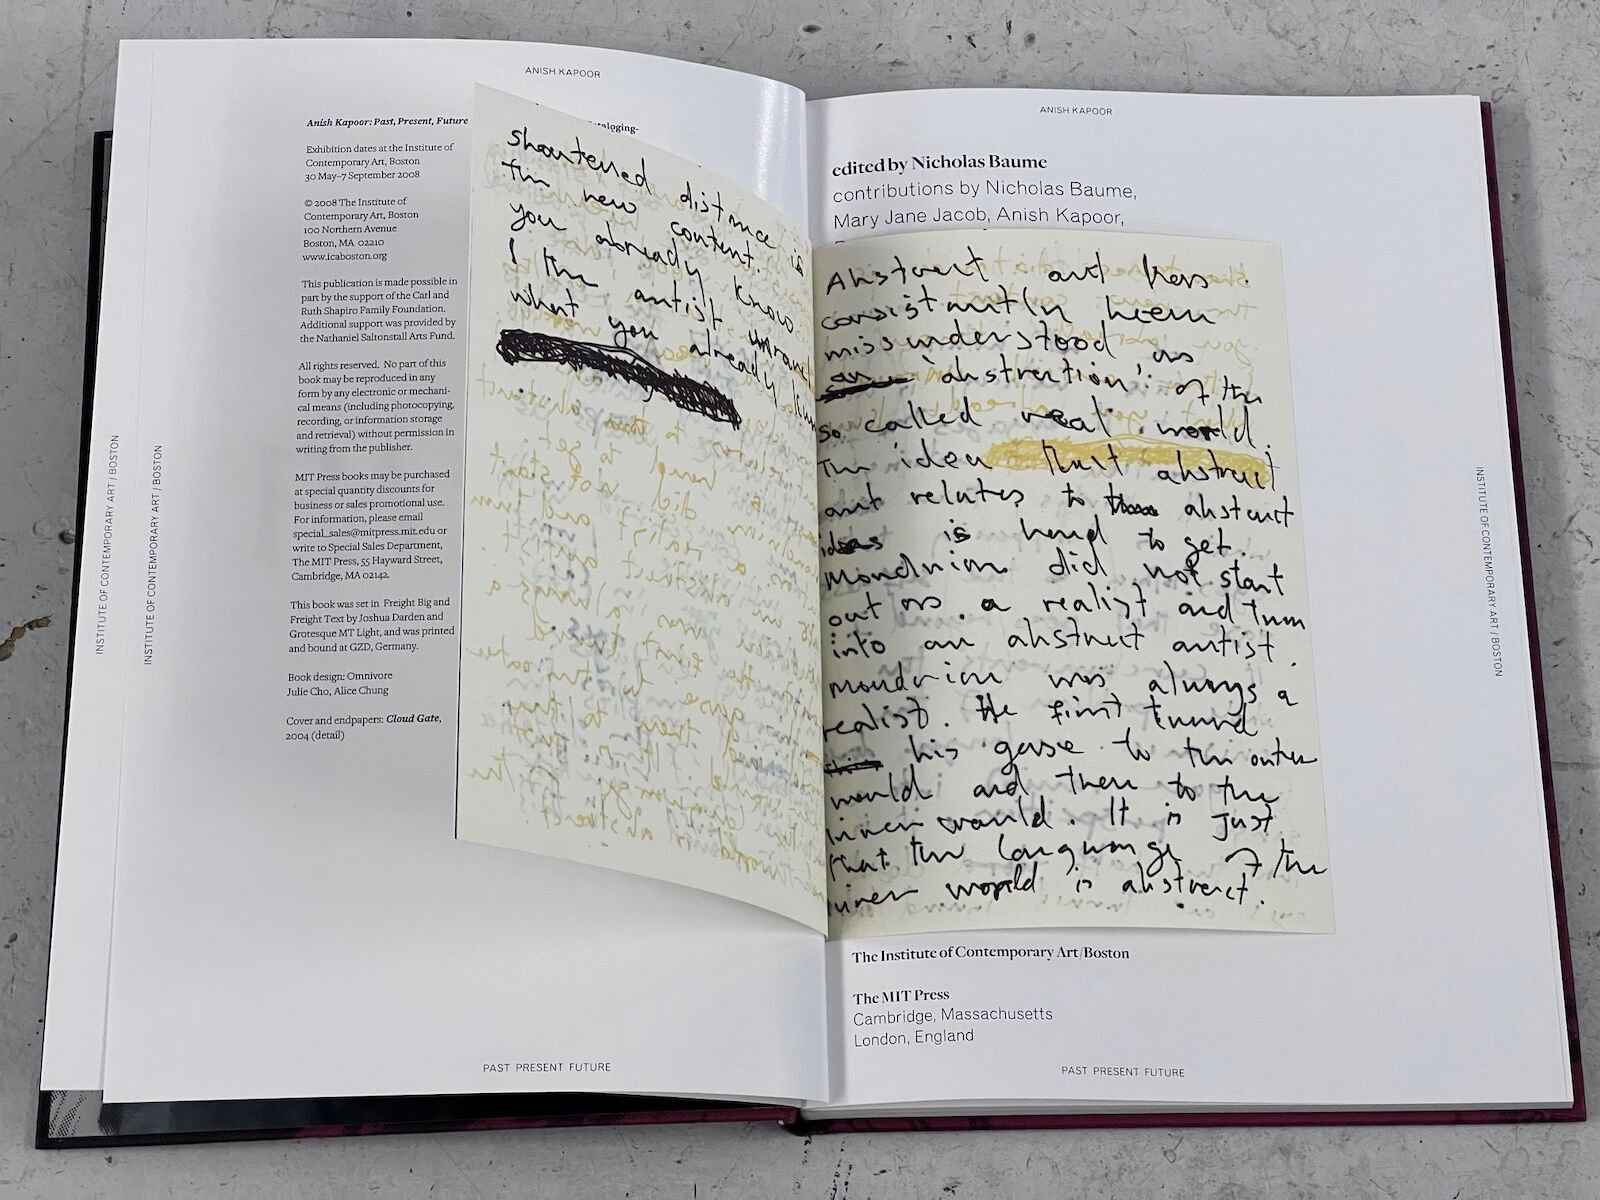 ANISH KAPOOR
Anish Kapoor: Past, Present, Future
Exhibition dates at the Institute of
Contemporary Art, Boston
30 May–7 September 2008
© 2008 The Institute of
Contemporary Art, Boston
100 Northern Avenue
Boston, MA 02210
www.icaboston.org
This publication is made possible in
part by the support of the Carl and
Ruth Shapiro Family Foundation.
Additional support was provided by
the Nathaniel Saltonstall Arts Fund.
All rights reserved. No part of this
book may be reproduced in any
form by any electronic or mechani-
cal means (including photocopying,
recording, or information storage
and retrieval) without permission in
writing from the publisher.
MIT Press books may be purchased
at special quantity discounts for
business or sales promotional use.
For information, please email
special_sales@mitpress.mit.edu or
write to Special Sales Department,
The MIT Press, 55 Hayward Street,
Cambridge, MA 02142.
This book was set in Freight Big and
Freight Text by Joshua Darden and
Grotesque MT Light, and was printed
and bound at GZD, Germany.
Book design: Omnivore
Julie Cho, Alice Chung
Cover and endpapers: Cloud Gate,
2004 (detail)
INSTITUTE OF CONTEMPORARY ART / BOSTON
INSTITUTE OF CONTEMPORARY ART / BOSTON
PAST PRESENT FUTURE
shortened distance is
the new content.
you already know.
I the artist
what you already
ANISH KAPOOR
edited by Nicholas Baume
contributions by Nicholas Baume,
Mary Jane Jacob, Anish Kapoor,
Abstract and has
consistantly been
missunderstood as
an 'abstraction' of the
so called real world.
The idea that abstract
art relates to abstract
ideas is hard to get.
Mondrian did not start
out as a realist and turn
into an abstract artist.
Mondrian was always a
realist. He first turned
his gase to the outer
world and then to the
inner world. It is just
that the language of the
inner world is abstract.
The Institute of Contemporary Art/Boston
The MIT Press
Cambridge, Massachusetts
London, England
PAST PRESENT FUTURE
INSTITUTE OF CONTEMPORARY ART / BOSTON